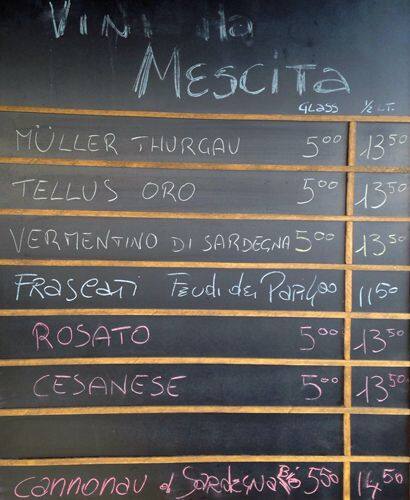 VINI da
MESCITA
GLASS ½ LT.
MÜLLER THURGAU 5⁰⁰ 13⁵⁰
TELLUS ORO 5⁰⁰ 13⁵⁰
VERMENTINO DI SARDEGNA 5⁰⁰ 13⁵⁰
FRASCATI FEUDI dei 4⁰⁰ 11⁵⁰
ROSATO 5⁰⁰ 13⁵⁰
CESANESE 5⁰⁰ 13⁵⁰
CANNONAU di SARDEGNA 5⁵⁰ 14⁵⁰